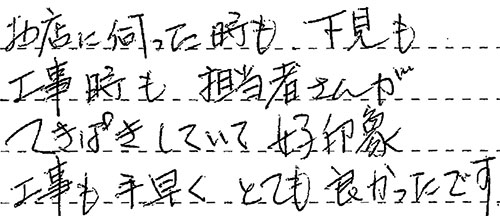 お店に伺った時も 下見も
工事時も 担当者さんが
てきぱきしていて 好印象
工事も手早く とても良かったです